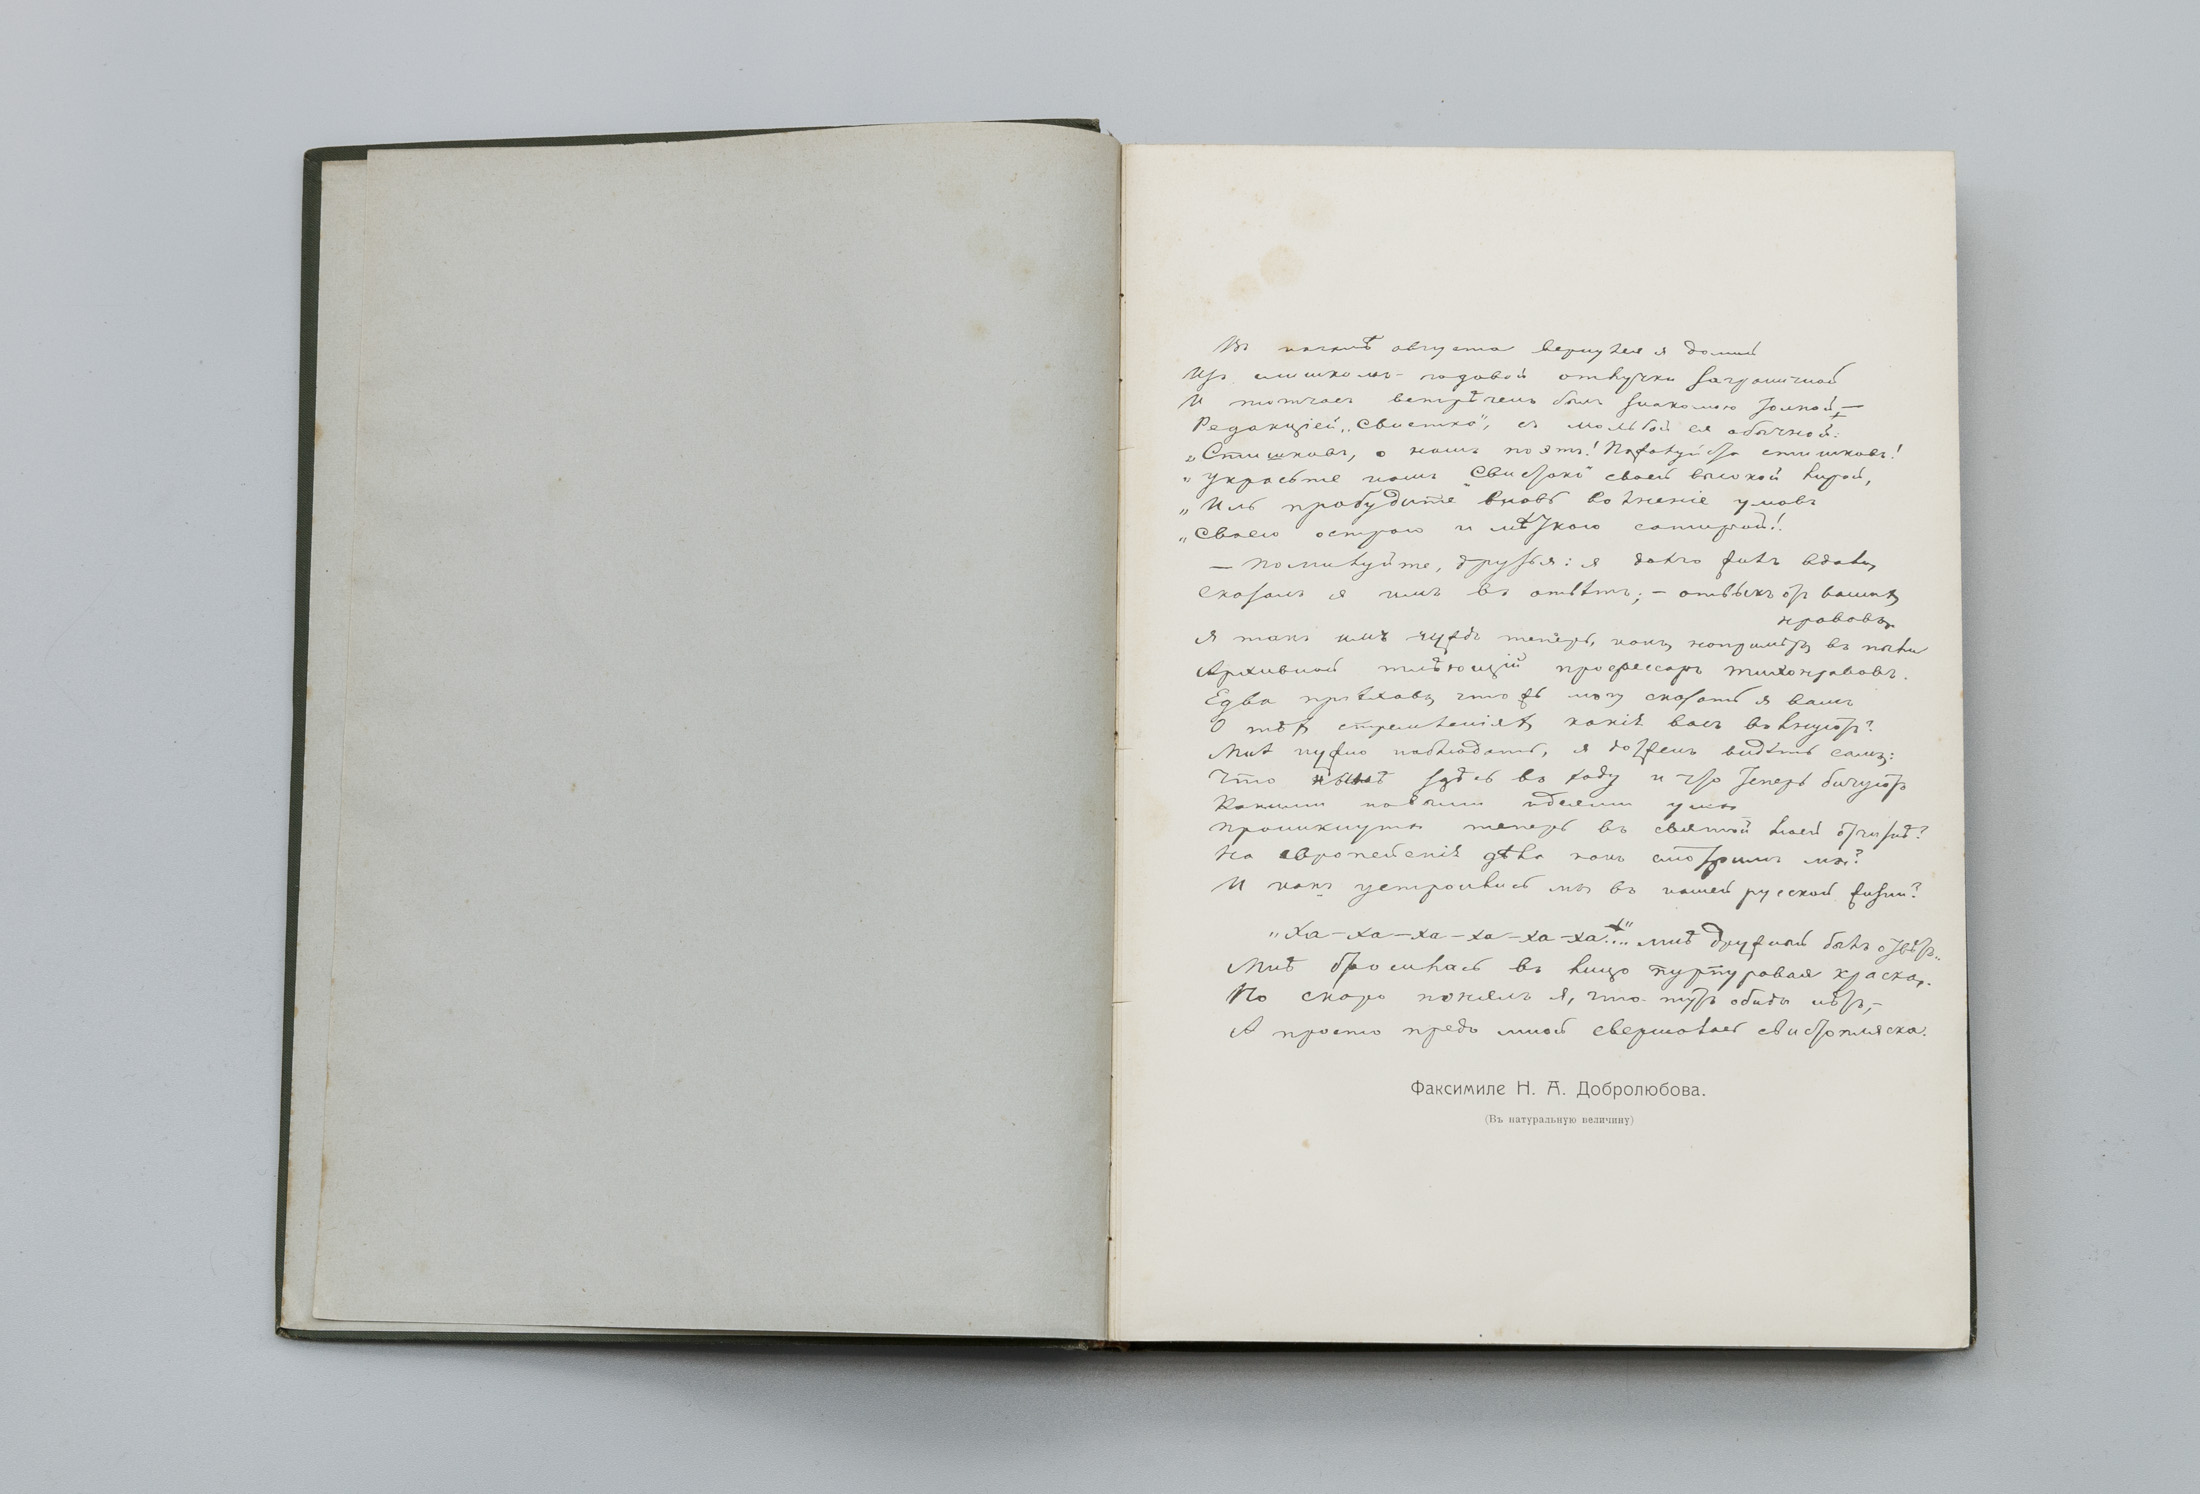 Въ началѣ августа вернулся я домой
Изъ слишкомъ-годовой отлучки заграничной
И тотчасъ встрѣченъ былъ знакомою толпой, —
Редакціей „Свистка", съ мольбой ея обычной:
„Стишковъ, о нашъ поэтъ! Пожалуйста стишковъ!
„Украсьте нашъ „Свистокъ" своей высокой лирой,
„Иль пробудите вновь волненіе умовъ
„Своею острою и мѣткою сатирой!
— Помилуйте, друзья: я долго жилъ вдали,
Сказалъ я имъ въ отвѣтъ; — отвыкъ отъ вашихъ
нравовъ.
Я такъ имъ чуждъ теперь, какъ, напримѣръ, въ пыли
Архивной тлѣющій профессоръ Тихонравовъ.
Едва пріѣхавъ, что жъ могу сказать я вамъ
О тѣхъ стремленіяхъ, какія васъ волнуютъ?
Мнѣ нужно наблюдать, я долженъ видѣть самъ:
Что нынѣ здѣсь въ ходу и что теперь бичуютъ
Какими новыми идеями умы
Проникнуты теперь въ святой моей отчизнѣ?
На европейскія дѣла какъ смотримъ мы?
И какъ устроились мы въ нашей русской жизни?
„Ха-ха-ха-ха-ха-ха!.." мнѣ дружный былъ отвѣтъ..
Мнѣ бросилась въ лицо пурпуровая краска,
Но скоро понялъ я, что тутъ обиды нѣтъ,—
А просто предо мной свершалась свистопляска.
Факсимиле Н. А. Добролюбова.
(Въ натуральную величину)